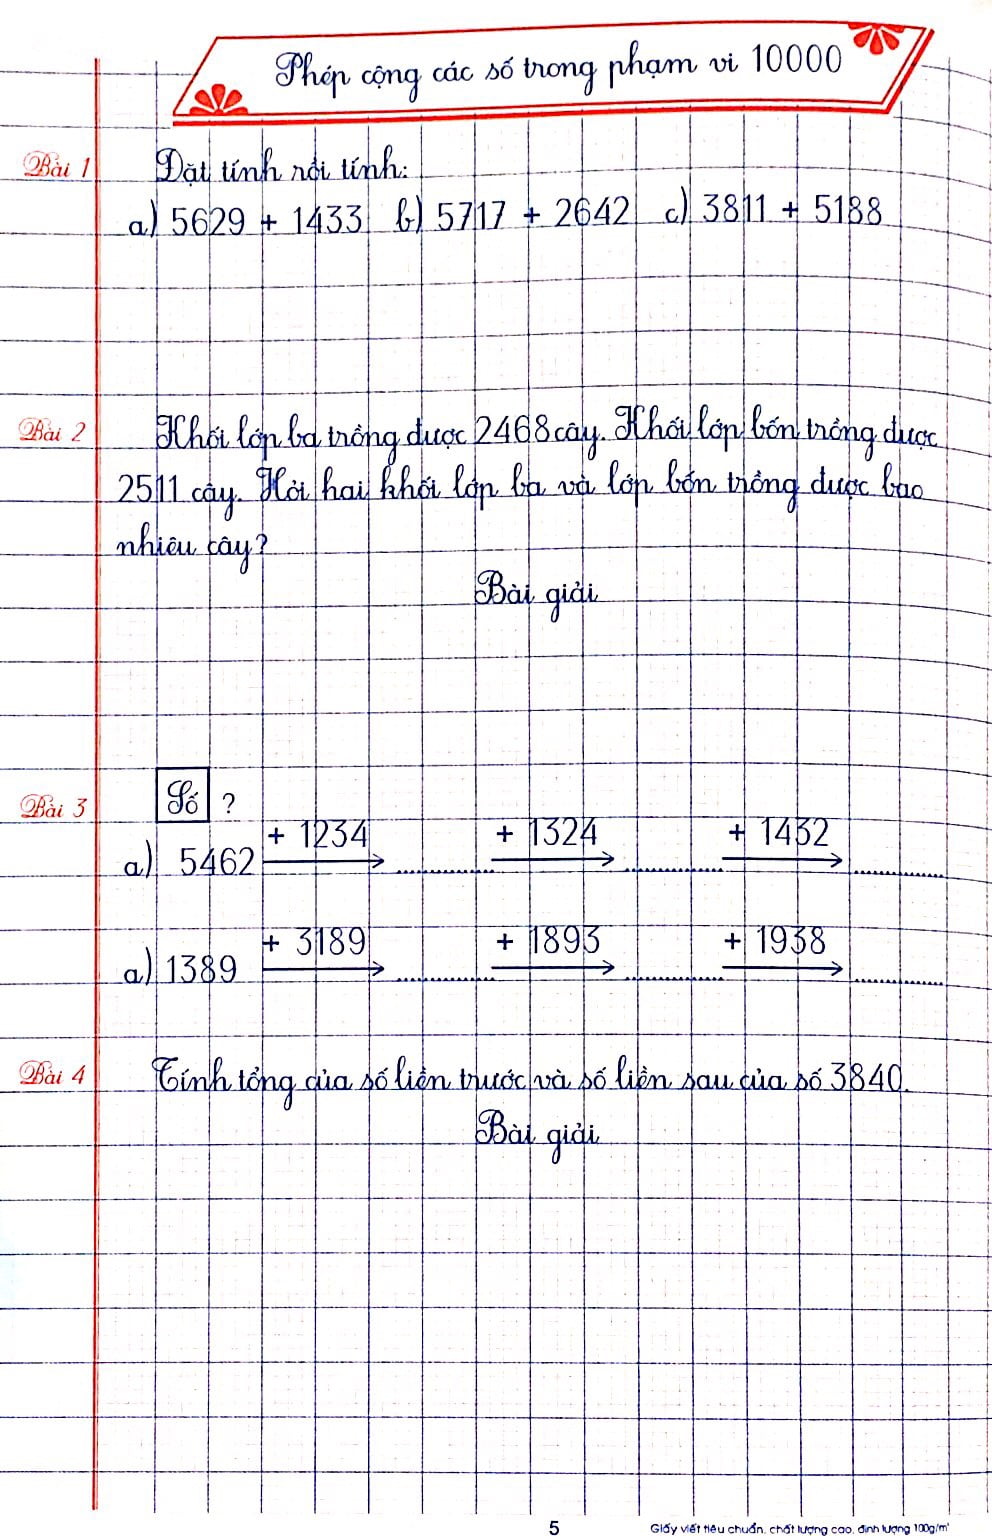 Phép cộng các số trong phạm vi 10000
Bài 1 Đặt tính rồi tính:
a) 5629 + 1433 b) 5717 + 2642 c) 3811 + 5188
Bài 2 Khối lớp ba trồng được 2468 cây. Khối lớp bốn trồng được
2511 cây. Hỏi hai khối lớp ba và lớp bốn trồng được bao
nhiêu cây?
Bài giải
Bài 3 Số ?
+ 1234 + 1324 + 1432
a) 5462 ............ ............ ............
+ 3189 + 1893 + 1938
a) 1389 ............ ............ ............
Bài 4 Tính tổng của số liền trước và số liền sau của số 3840.
Bài giải
5 Giấy viết tiêu chuẩn, chất lượng cao, định lượng 100g/m²